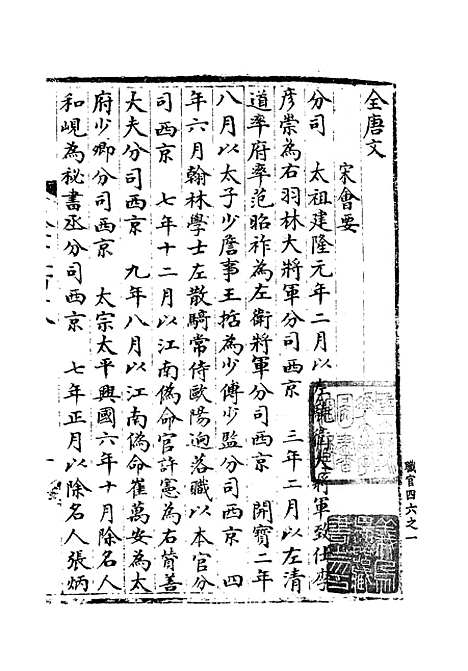 全唐文
宋會要
分司　太祖建隆元年二月以左驍衛大將軍致仕李
彦崇為右羽林大將軍分司西京　三年二月以左清
道率府率范昭祚為左衛將軍分司西京　開寶二年
八月以太子少詹事王拈為少傅少監分司西京　四
年六月翰林學士左散騎常侍歐陽逈落職以本官分
司西京　七年十二月以江南偽命官許憲為右贊善
大夫分司西京　九年八月以江南偽命崔萬安為太
府少卿分司西京　太宗太平興國六年十月除名人
和峴為秘書丞分司西京　七年正月以除名人張炳
職官四六之一